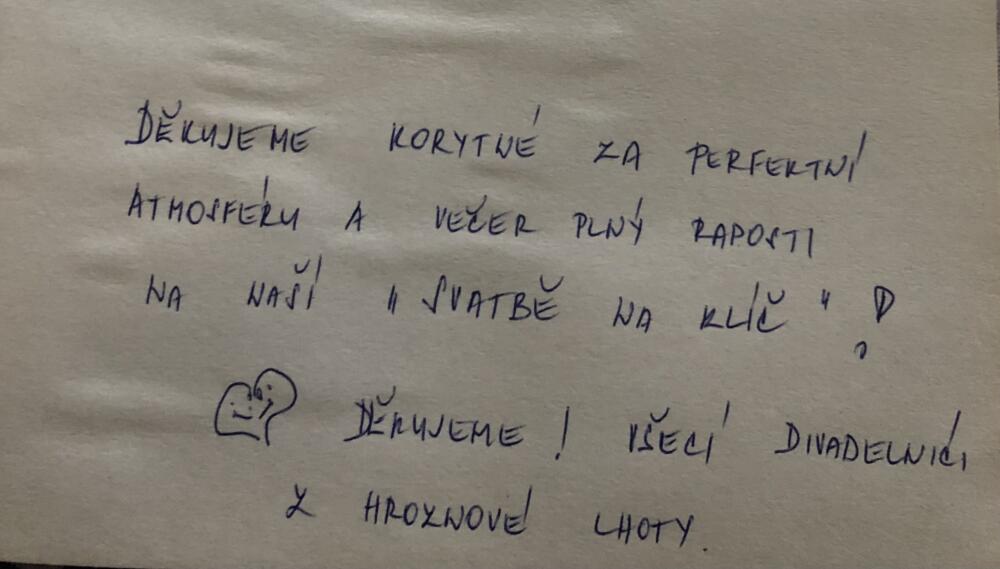 DĚKUJEME KORYTNÉ ZA PERFEKTNÍ
ATMOSFÉRU A VEČER PLNÝ RADOSTI
NA NAŠÍ "SVATBĚ NA KLÍČ"!
DĚKUJEME! VŠECÍ DIVADELNÍCI
Z HROZNOVÉ LHOTY.